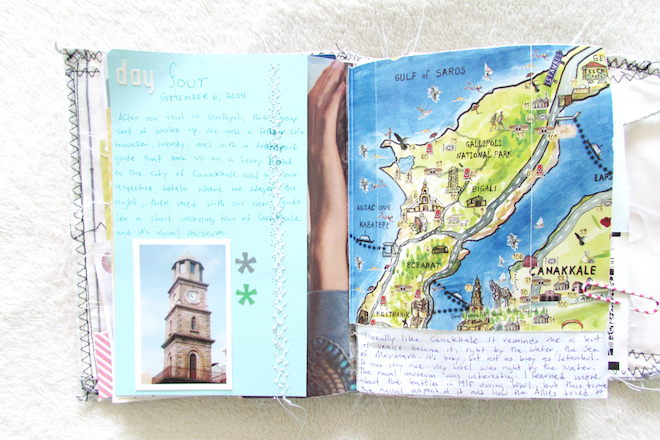 day four
SEPTEMBER 6, 2014
After our visit in Gallipoli, group
sort of broke up. We were a
traveller. met with a transport
guide that took us on a ferry
to the city of Canakkale and to our
respective hotels where we stayed the
night, then met with our next guide
for a short morning tour of Canakkale
and it's naval museum.
GULF of SAROS
GALLIPOLI
NATIONAL PARK
BIGALI
ANZAC COVE
KABATEPE
ECEABAT
KILITBAHIR
ÇANAKKALE
LAPS
GEL
I really like Canakkale. It reminds me a bit
of Venice because it's right by the water, the Sea
of Marmara. It's busy, but not as busy as Istanbul.
It was very nice. My hotel was right by the water.
The naval museum was interesting. I learned more
about the battles in 1915 during WWI, but this time
the naval aspect of it and how the Allies tried to